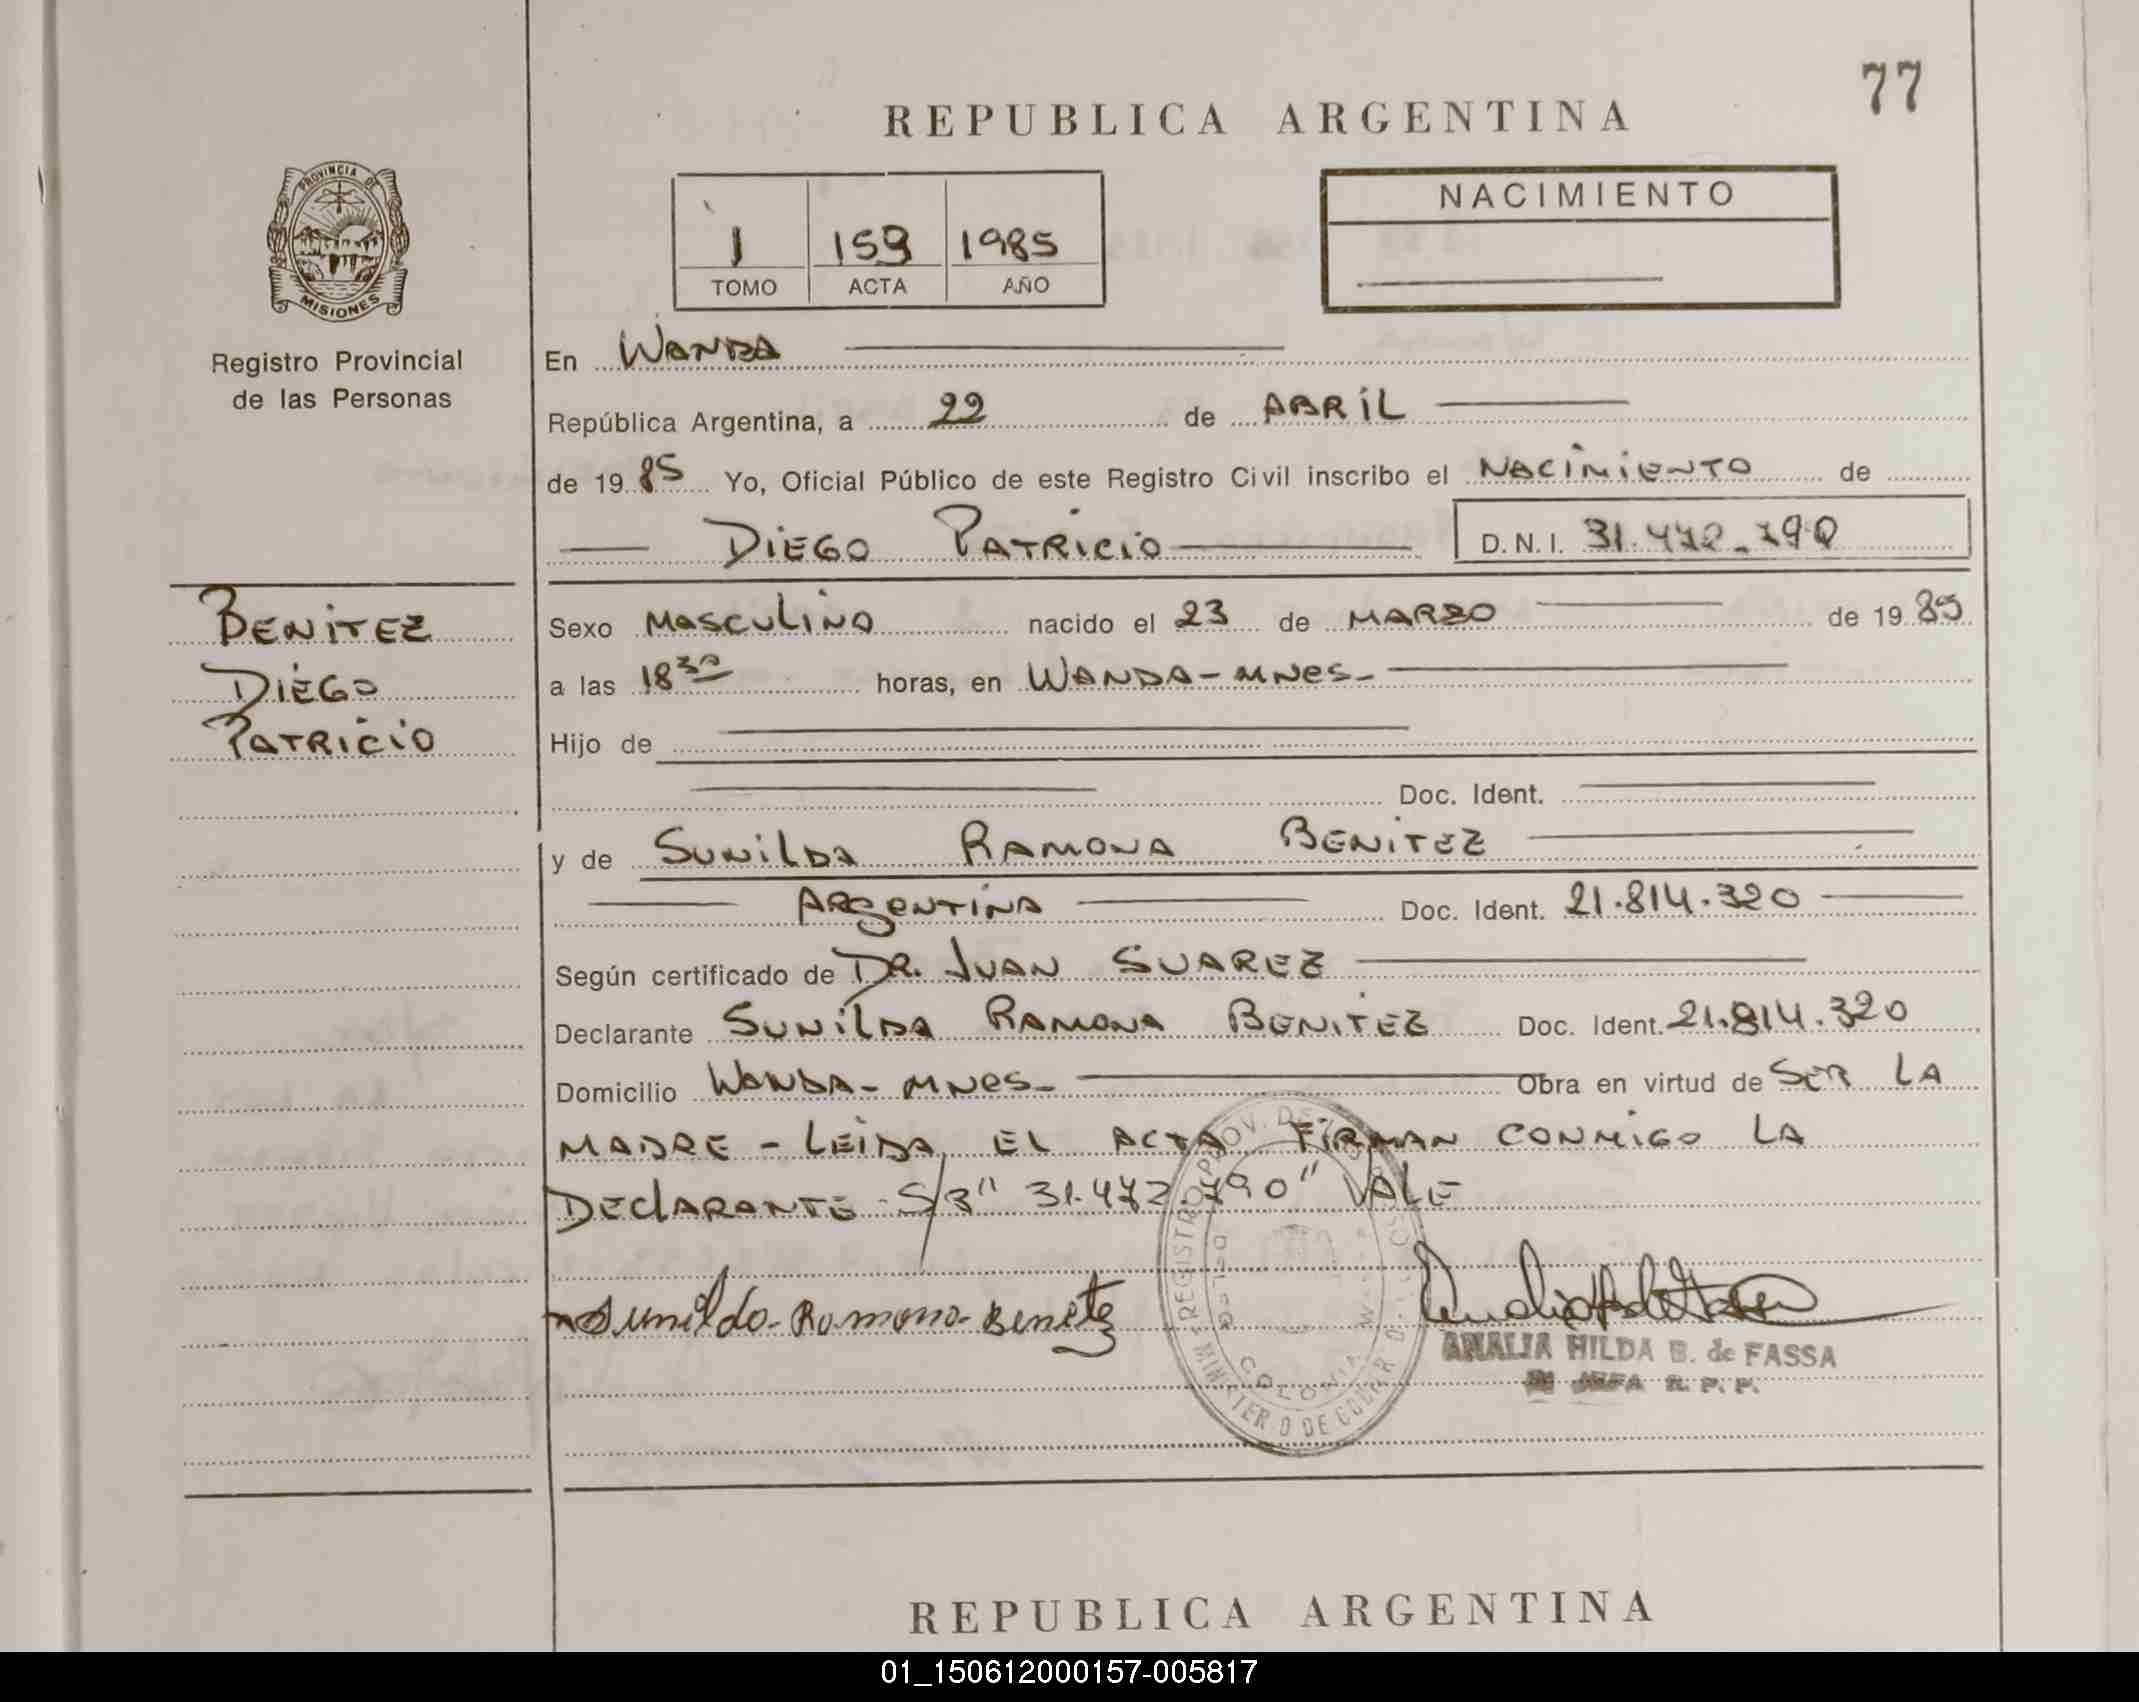 77
REPUBLICA ARGENTINA
PROVINCIA DE
MISIONES
Registro Provincial
de las Personas
1 159 1985
TOMO ACTA AÑO
NACIMIENTO
En WANDA
República Argentina, a 22 de ABRIL
de 19 85 Yo, Oficial Público de este Registro Civil inscribo el NACIMIENTO de
DIEGO PATRICIO D.N.I. 31.472.790
BENITEZ
DIEGO
PATRICIO
Sexo MASCULINO nacido el 23 de MARZO de 19 85
a las 18 30 horas, en WANDA - MNES -
Hijo de
Doc. Ident.
y de SUNILDA RAMONA BENITEZ
ARGENTINA Doc. Ident. 21.814.320
Según certificado de DR. JUAN SUAREZ
Declarante SUNILDA RAMONA BENITEZ Doc. Ident. 21.814.320
Domicilio WANDA - MNES - Obra en virtud de SER LA
MADRE - LEIDA EL ACTA FIRMAN CONMIGO LA
DECLARANTE S/B" 31.472.790" VALE
Sunilda Ramona Benitez
REGISTRO PROV. DE
COLONIA
AMALIA HILDA B. de FASSA
JEFA R. P. P.
REPUBLICA ARGENTINA
01_150612000157-005817